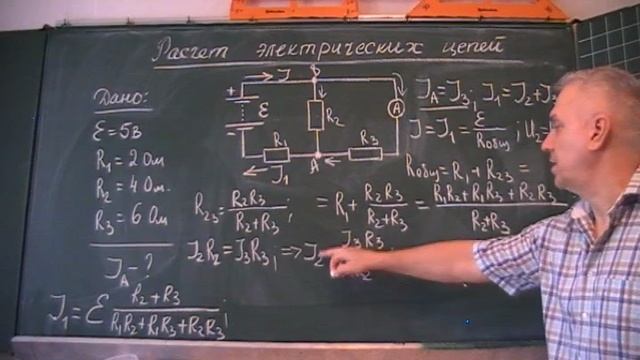 Расчет электрических цепей
Дано:
ℰ=5в
R₁=2 Ом
R₂=4 Ом.
R₃=6 Ом
J_A-?
+
-
ℰ
J
R₂
A
R₁
R₃
A
J₁
J_A=J₃; J₁=J₂+J
J=J₁=ℰ/Rобщ; U₂=
Rобщ=R₁+R₂₃=
R₂₃=R₂R₃/(R₂+R₃); =R₁+R₂R₃/(R₂+R₃)=(R₁R₂+R₁R₃+R₂R₃)/(R₂+R₃)
J₂R₂=J₃R₃; => J₂ J₃R₃/ ₂
J₁=ℰ (R₂+R₃)/(R₁R₂+R₁R₃+R₂R₃);